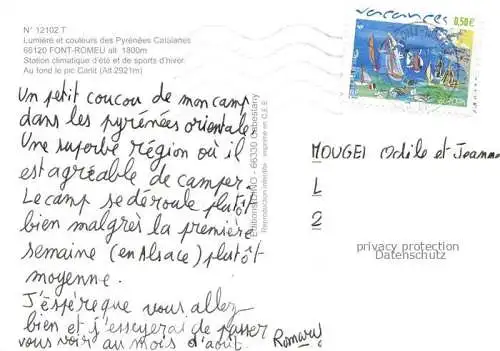 N° 12102 T
Lumière et couleurs des Pyrénées Catalanes
66120 FONT-ROMEU alt 1800m
Station climatique d'été et de sports d'hiver.
Au fond le pic Carlit (Alt 2921m)
vacances
0,50 €
Un petit coucou de mon camp
dans les pyrénées orientale
Une superbe région où il
est agréable de camper.
Le camp se déroule plutôt
bien malgrès la première
semaine (en Alsace) plutôt
moyenne.
J'espère que vous allez
bien et j'essayerai de passer
vous voir au mois d'août.
Romary
66330 Cabestany
Reproduction interdite
MOUGEL Odile et Jeanne
L
2
privacy protection
Datenschutz